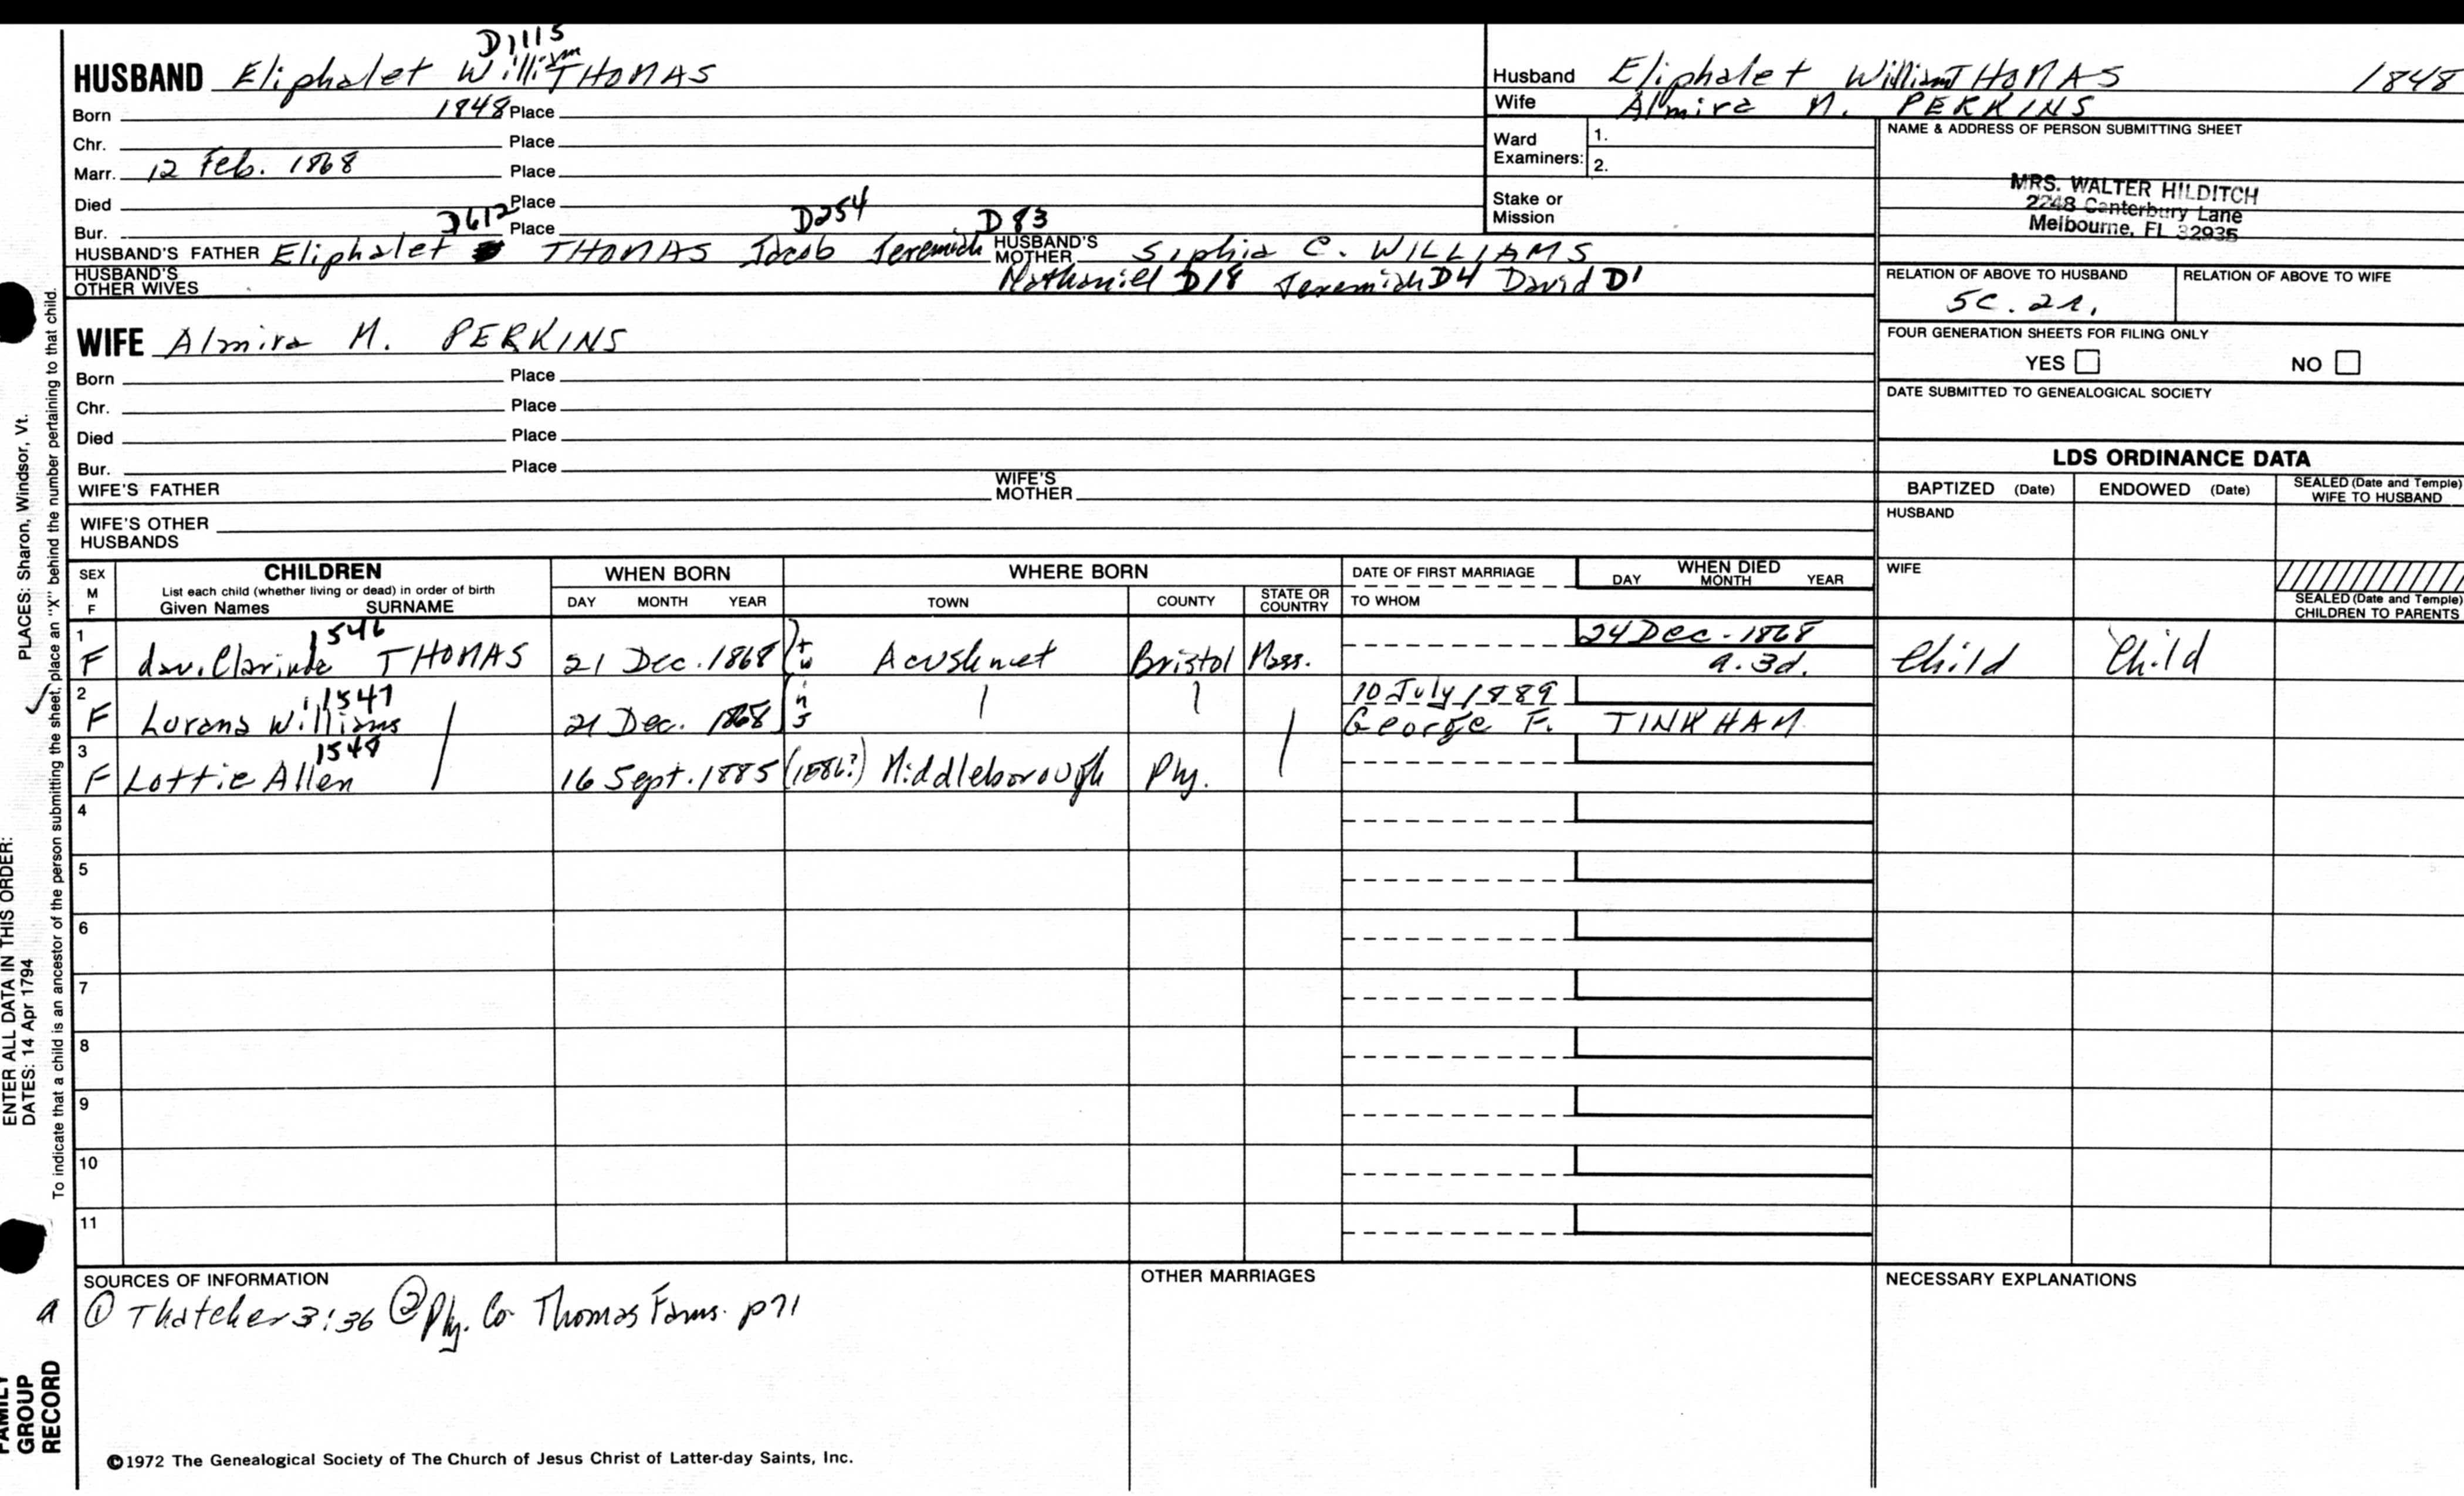 D1115
HUSBAND Eliphalet William THOMAS
Born 1848 Place
Chr. Place
Marr. 12 Feb. 1868 Place
Died Place
Bur. D612 Place D254 D83
HUSBAND'S FATHER Eliphalet THOMAS Jacob Jeremiah HUSBAND'S MOTHER Sophia C. WILLIAMS
HUSBAND'S OTHER WIVES Nathaniel D18 Jeremiah D4 David D1
WIFE Almira M. PERKINS
Born Place
Chr. Place
Died Place
Bur. Place
WIFE'S FATHER WIFE'S MOTHER
WIFE'S OTHER HUSBANDS
Husband Eliphalet William THOMAS 1848
Wife Almira M. PERKINS
Ward Examiners: 1.
2.
Stake or Mission
NAME & ADDRESS OF PERSON SUBMITTING SHEET
MRS. WALTER HILDITCH
2248 Canterbury Lane
Melbourne, FL 32935
RELATION OF ABOVE TO HUSBAND RELATION OF ABOVE TO WIFE
5C. 2r.
FOUR GENERATION SHEETS FOR FILING ONLY
YES NO
DATE SUBMITTED TO GENEALOGICAL SOCIETY
LDS ORDINANCE DATA
BAPTIZED (Date) ENDOWED (Date) SEALED (Date and Temple) WIFE TO HUSBAND
HUSBAND
WIFE
SEALED (Date and Temple) CHILDREN TO PARENTS
SEX M F CHILDREN WHEN BORN WHERE BORN DATE OF FIRST MARRIAGE WHEN DIED
List each child (whether living or dead) in order of birth
Given Names SURNAME DAY MONTH YEAR TOWN COUNTY STATE OR COUNTRY TO WHOM DAY MONTH YEAR
1 1546 24 Dec. 1868
F dau. Clarinda THOMAS 21 Dec. 1868 twins Acushnet Bristol Mass. a. 3d. Child Child
2 1547 10 July 1889
F Lurana Williams 21 Dec. 1868 George F. TINKHAM
3 1548
F Lottie Allen 16 Sept. 1885 (1886?) Middleborough Ply.
4
5
6
7
8
9
10
11
SOURCES OF INFORMATION OTHER MARRIAGES NECESSARY EXPLANATIONS
① Thatcher 3:36 ② Ply. Co. Thomas Fams. p71
©1972 The Genealogical Society of The Church of Jesus Christ of Latter-day Saints, Inc.
PLACES: Sharon, Windsor, Vt.
To indicate that a child is an ancestor of the person submitting the sheet, place an "X" behind the number pertaining to that child.
ENTER ALL DATA IN THIS ORDER:
DATES: 14 Apr 1794
FAMILY GROUP RECORD